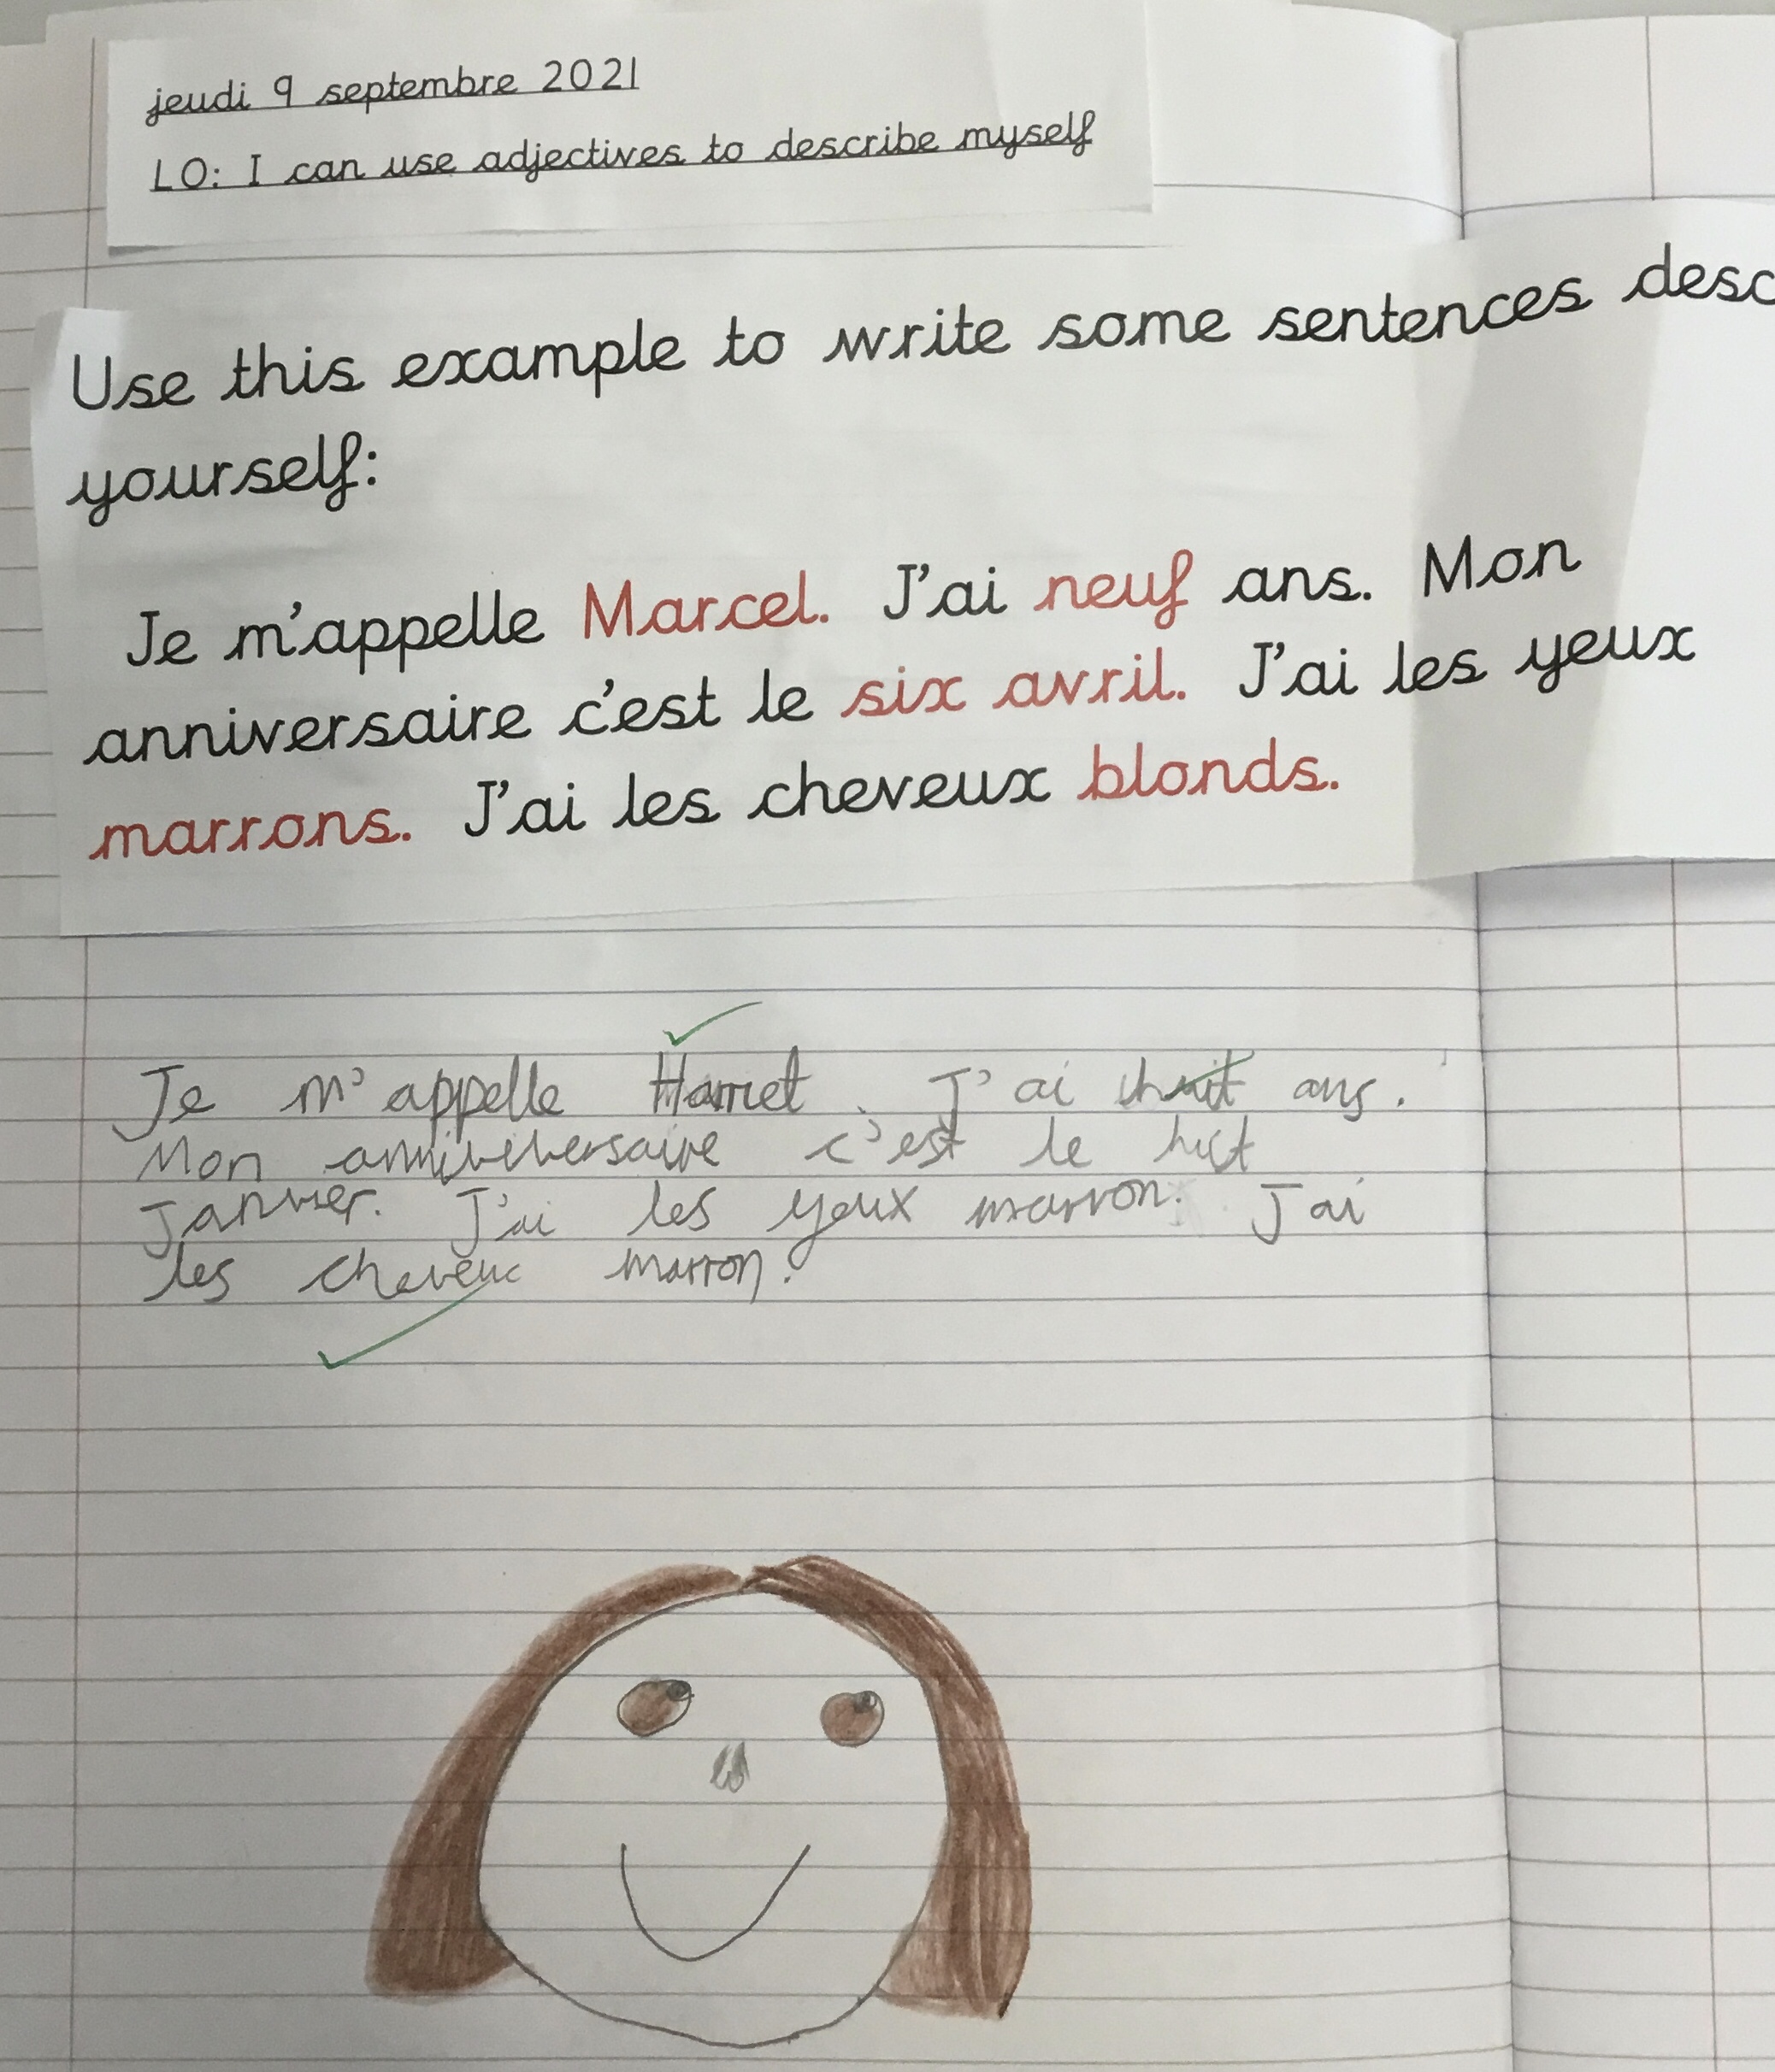 jeudi 9 septembre 2021
LO: I can use adjectives to describe myself
Use this example to write some sentences desc
yourself:
Je m'appelle Marcel. J'ai neuf ans. Mon
anniversaire c'est le six avril. J'ai les yeux
marrons. J'ai les cheveux blonds.
Je m'appelle Harriet. J'ai huit ans.
Mon c'est le
Janvier. J'ai les yeux marron. J'ai
les marron.